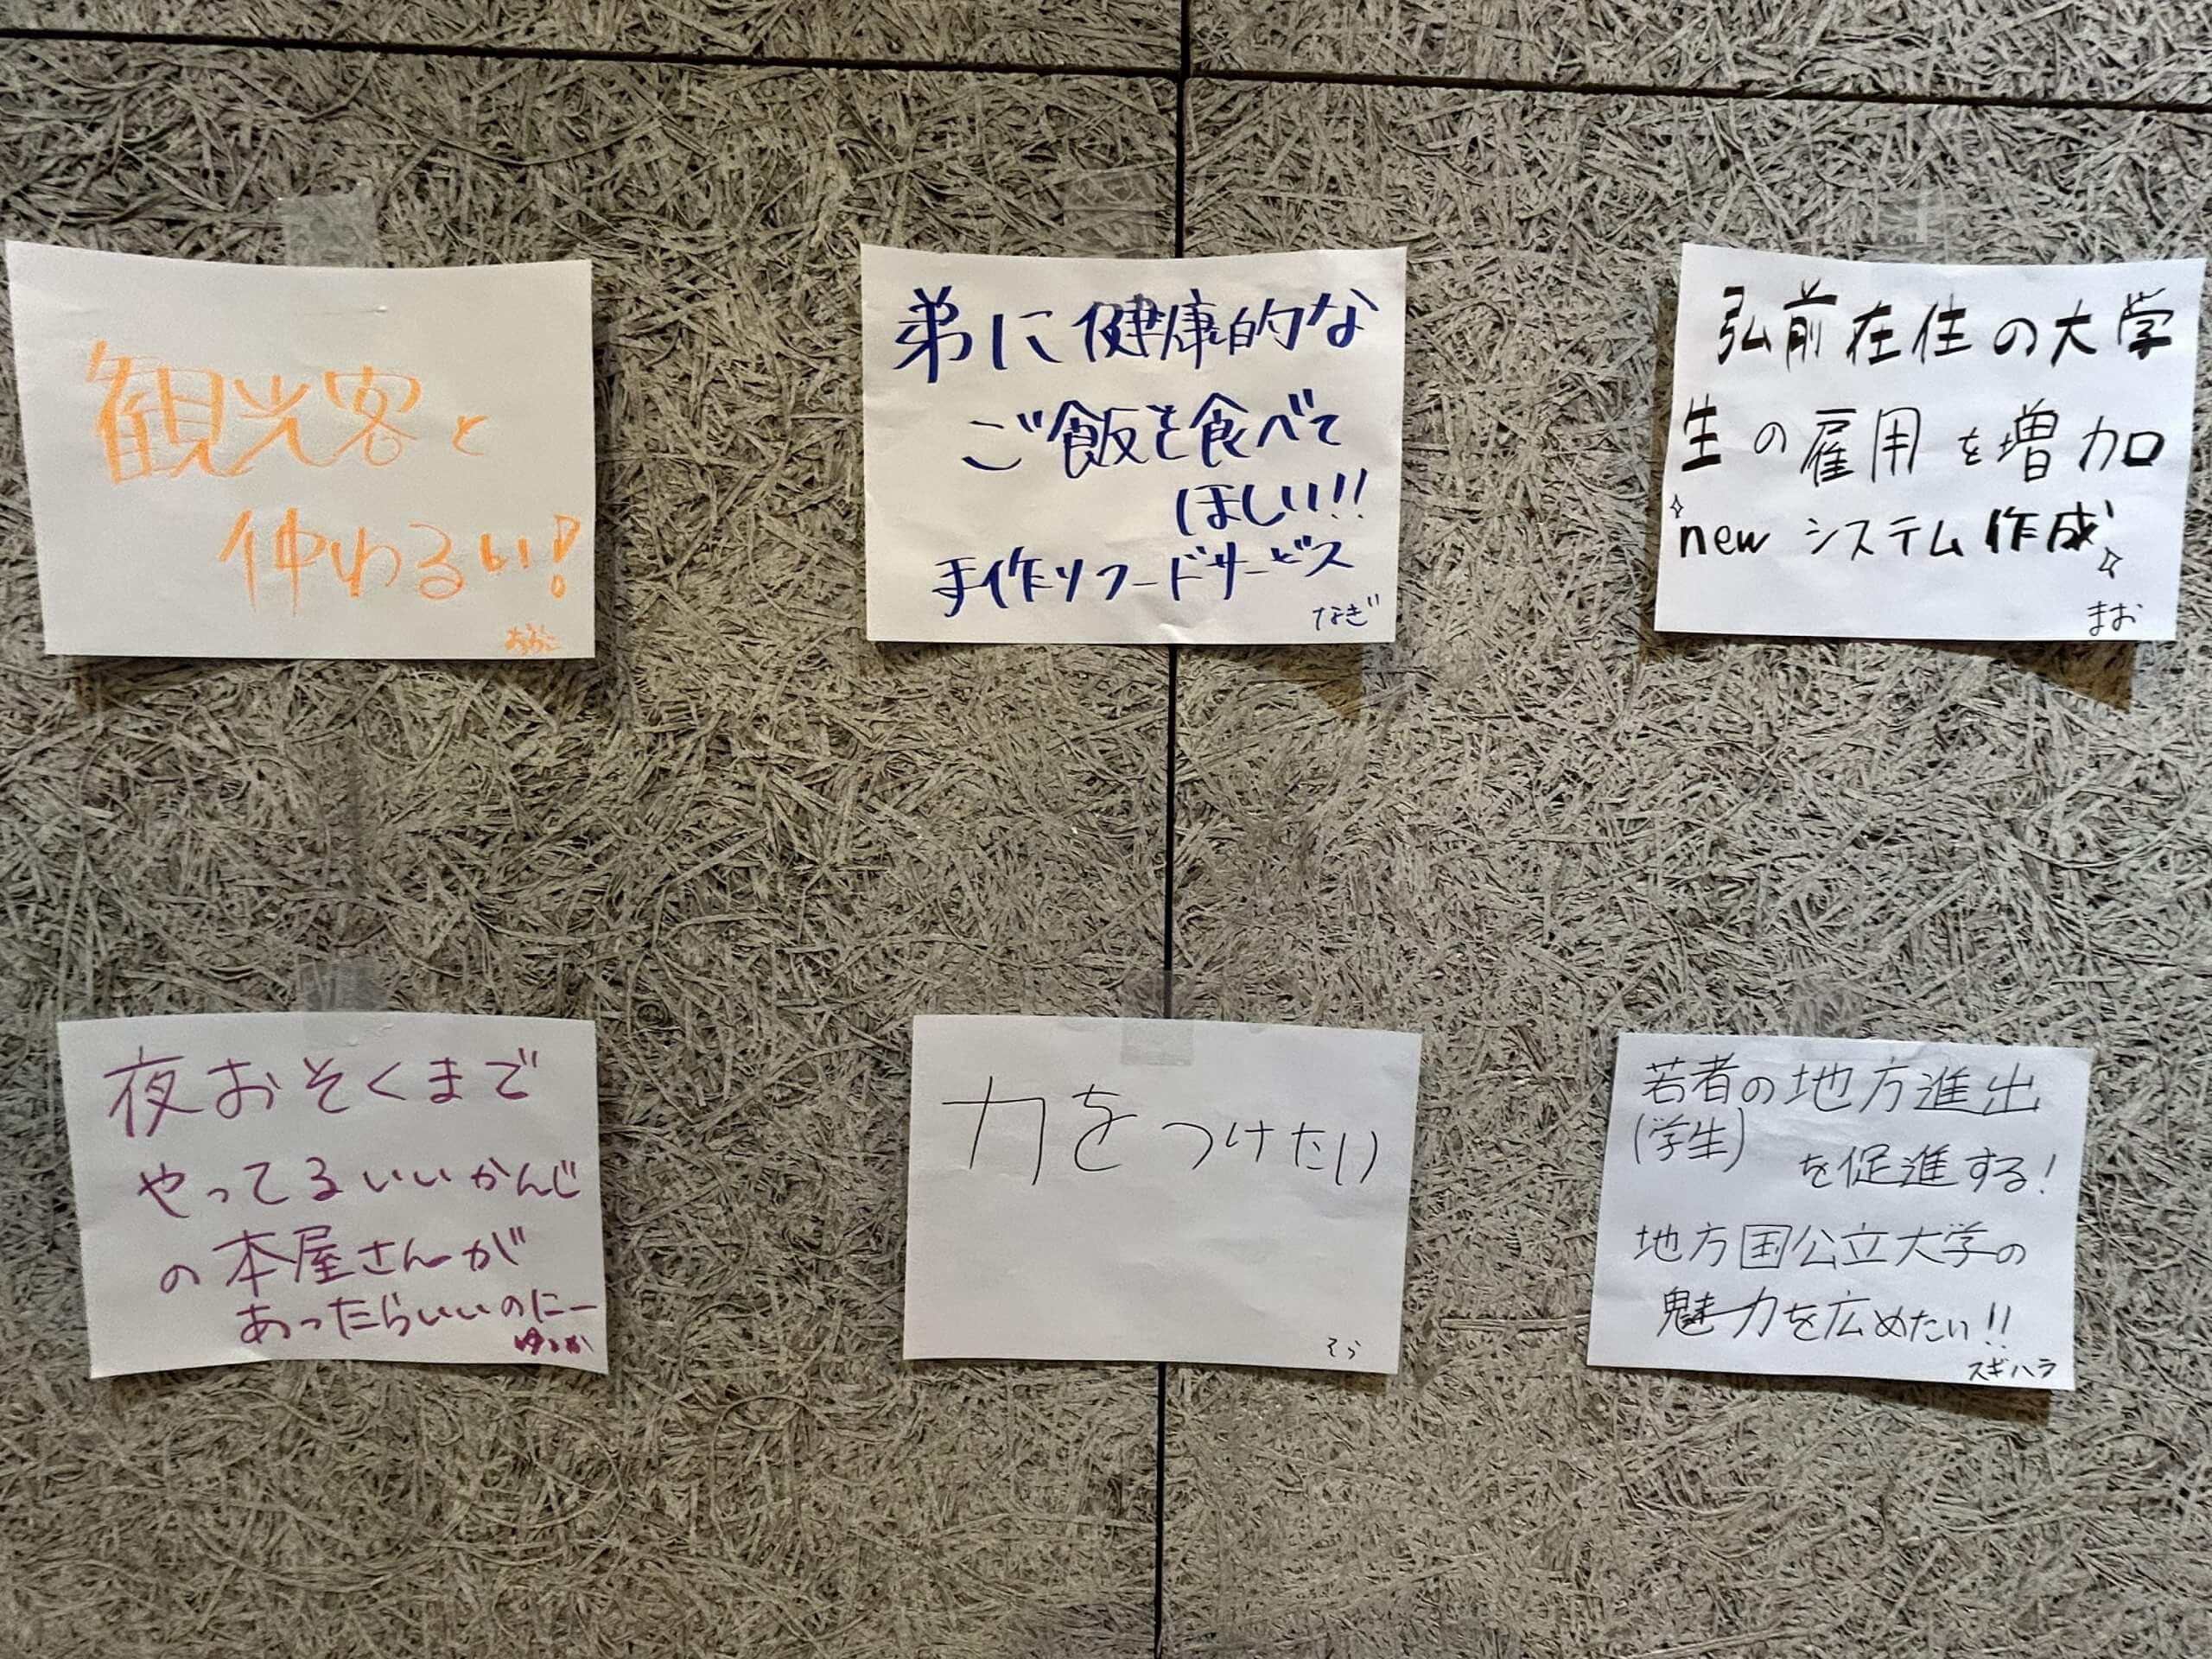 観光客と
仲わるい!
弟に健康的な
ご飯を食べて
ほしい!!
手作りフードサービス
なぎ
弘前在住の大学
生の雇用を増加
newシステム作成
まお
夜おそくまで
やってるいいかんじ
の本屋さんが
あったらいいのにー
ゆうか
力をつけたい
そら
若者の地方進出
(学生)
を促進する!
地方国公立大学の
魅力を広めたい!!
スギハラ